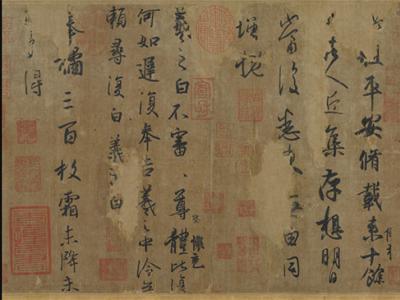 此粗平安脩載来十餘
日諸人近集存想明日
當復悉来無由同
增慨
羲之白不審尊體比復
何如遲復奉告羲之中冷無
賴尋復白羲之白
奉橘三百枚霜未降未
可多得